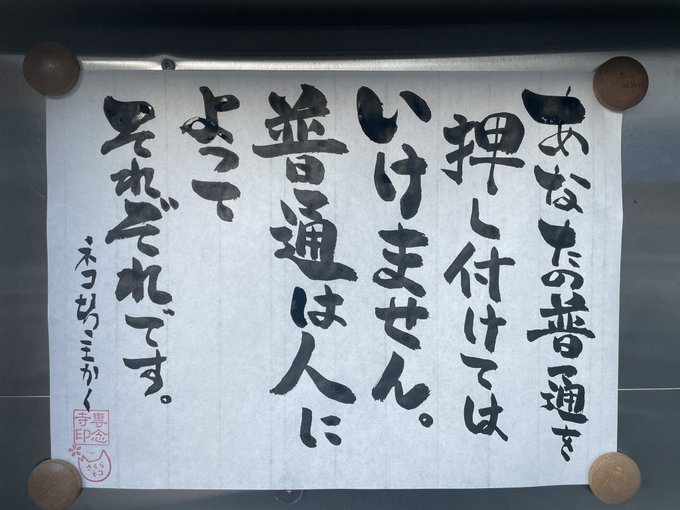 あなたの普通を
押し付けては
いけません。
普通は人に
よって
それぞれです。
ネコ坊主かく
專念
寺印
さくら
ネコ